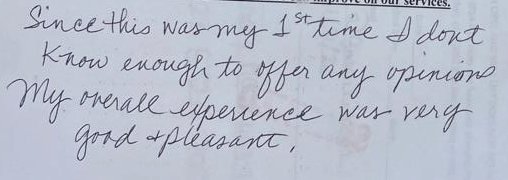 improve on our services.
Since this was my 1st time I dont
Know enough to offer any opinions
My overall experience was very
good + pleasant.